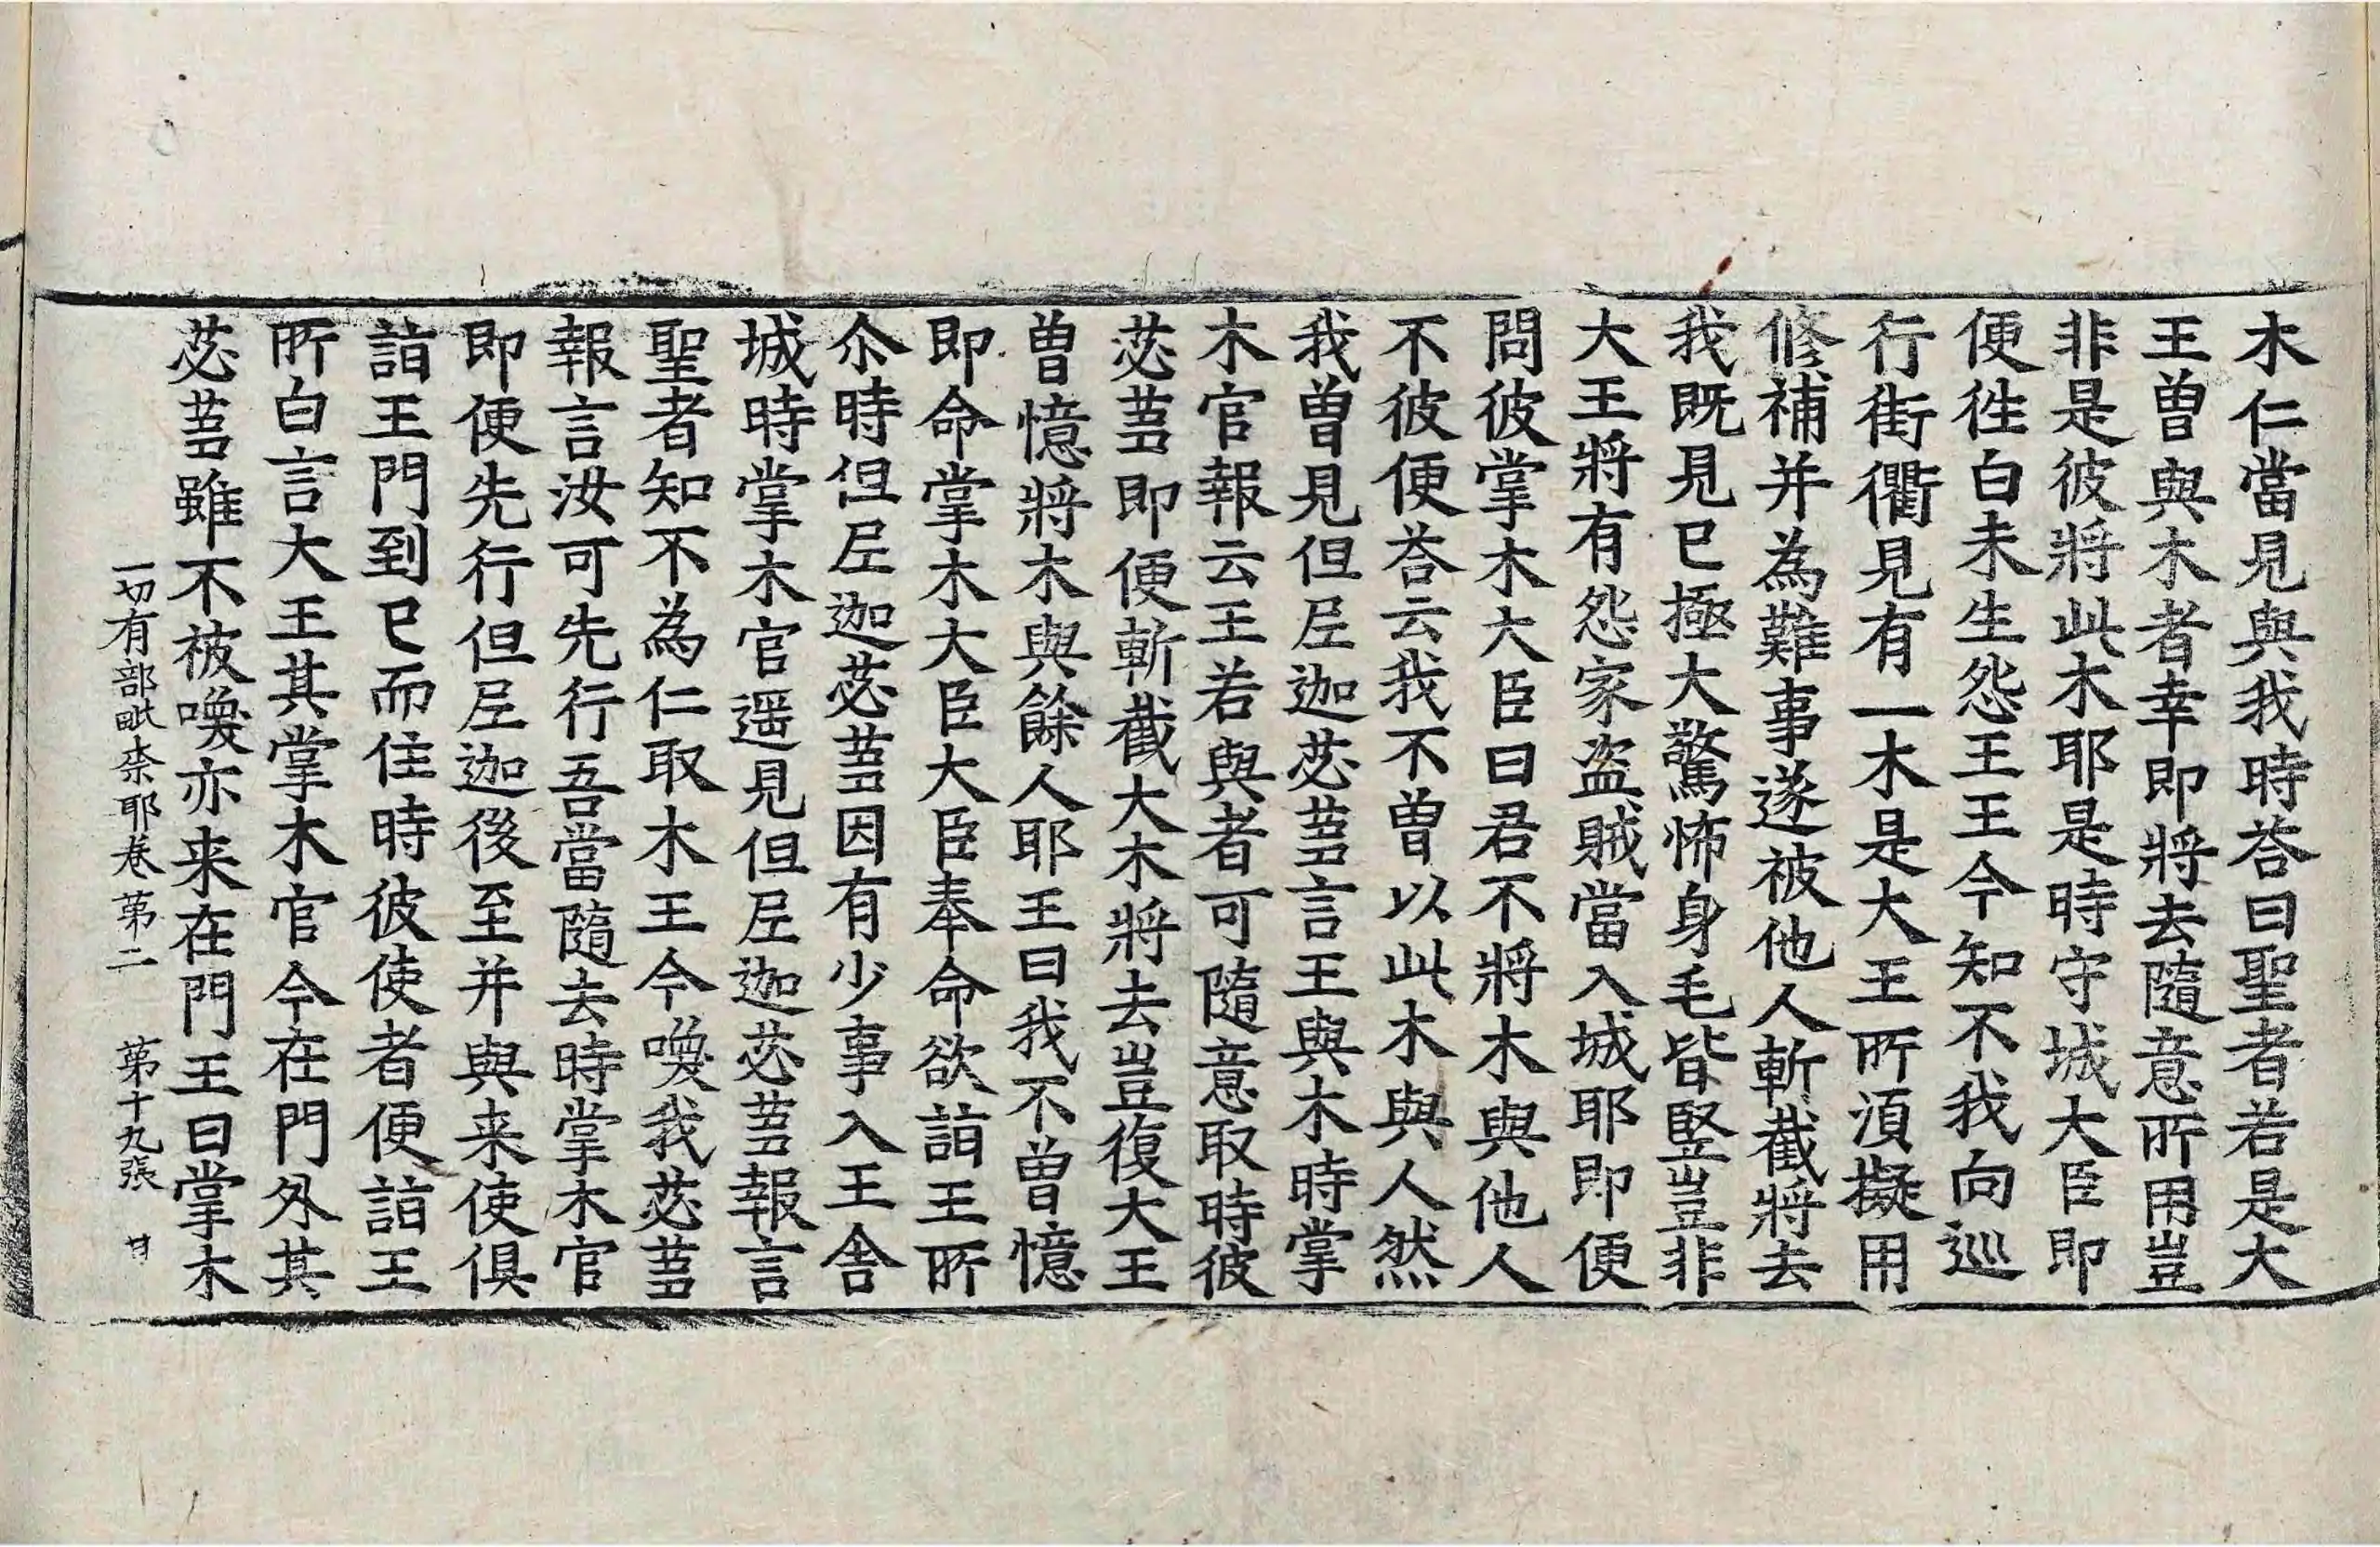 木仁當見與我時荅曰聖者若是大
王曽與木者幸即將去隨意所用豈
非是彼將此木耶是時守城大臣即
便徃白未生怨王王今知不我向巡
行街衢見有一木是大王所湏擬用
修補并為難事遂被他人斬截將去
我既見已極大驚怖身毛皆竪豈非
大王將有怨家盗賊當入城耶即便
問彼掌木大臣曰君不將木與他人
不彼便荅云我不曽以此木與人然
我曽見但𡰱迦苾蒭言王與木時掌
木官報云王若與者可隨意取時彼
苾蒭即便斬截大木將去豈復大王
曽憶將木與餘人耶王曰我不曽憶
即命掌木大臣大臣奉命欲詣王所
尒時但𡰱迦苾蒭因有少事入王舎
城時掌木官遥見但𡰱迦苾蒭報言
聖者知不為仁取木王今喚我苾蒭
報言汝可先行吾當隨去時掌木官
即便先行但𡰱迦後至并與来使俱
詣王門到已而住時彼使者便詣王
所白言大王其掌木官今在門外其
苾蒭雖不被喚亦来在門王曰掌木
一切有部毗柰耶卷第二 第十九張 甘